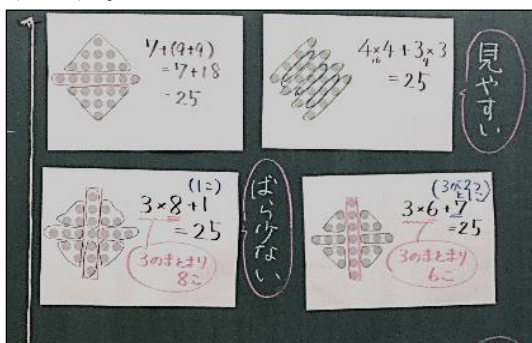 7+(9+9)
=7+18
=25
4×4+3×3
16 9
=25
見やすい
(1こ)
3×8+1
=25
3のまとまり
8こ
ばら少ない
3×6+7
=25
3のまとまり
6こ